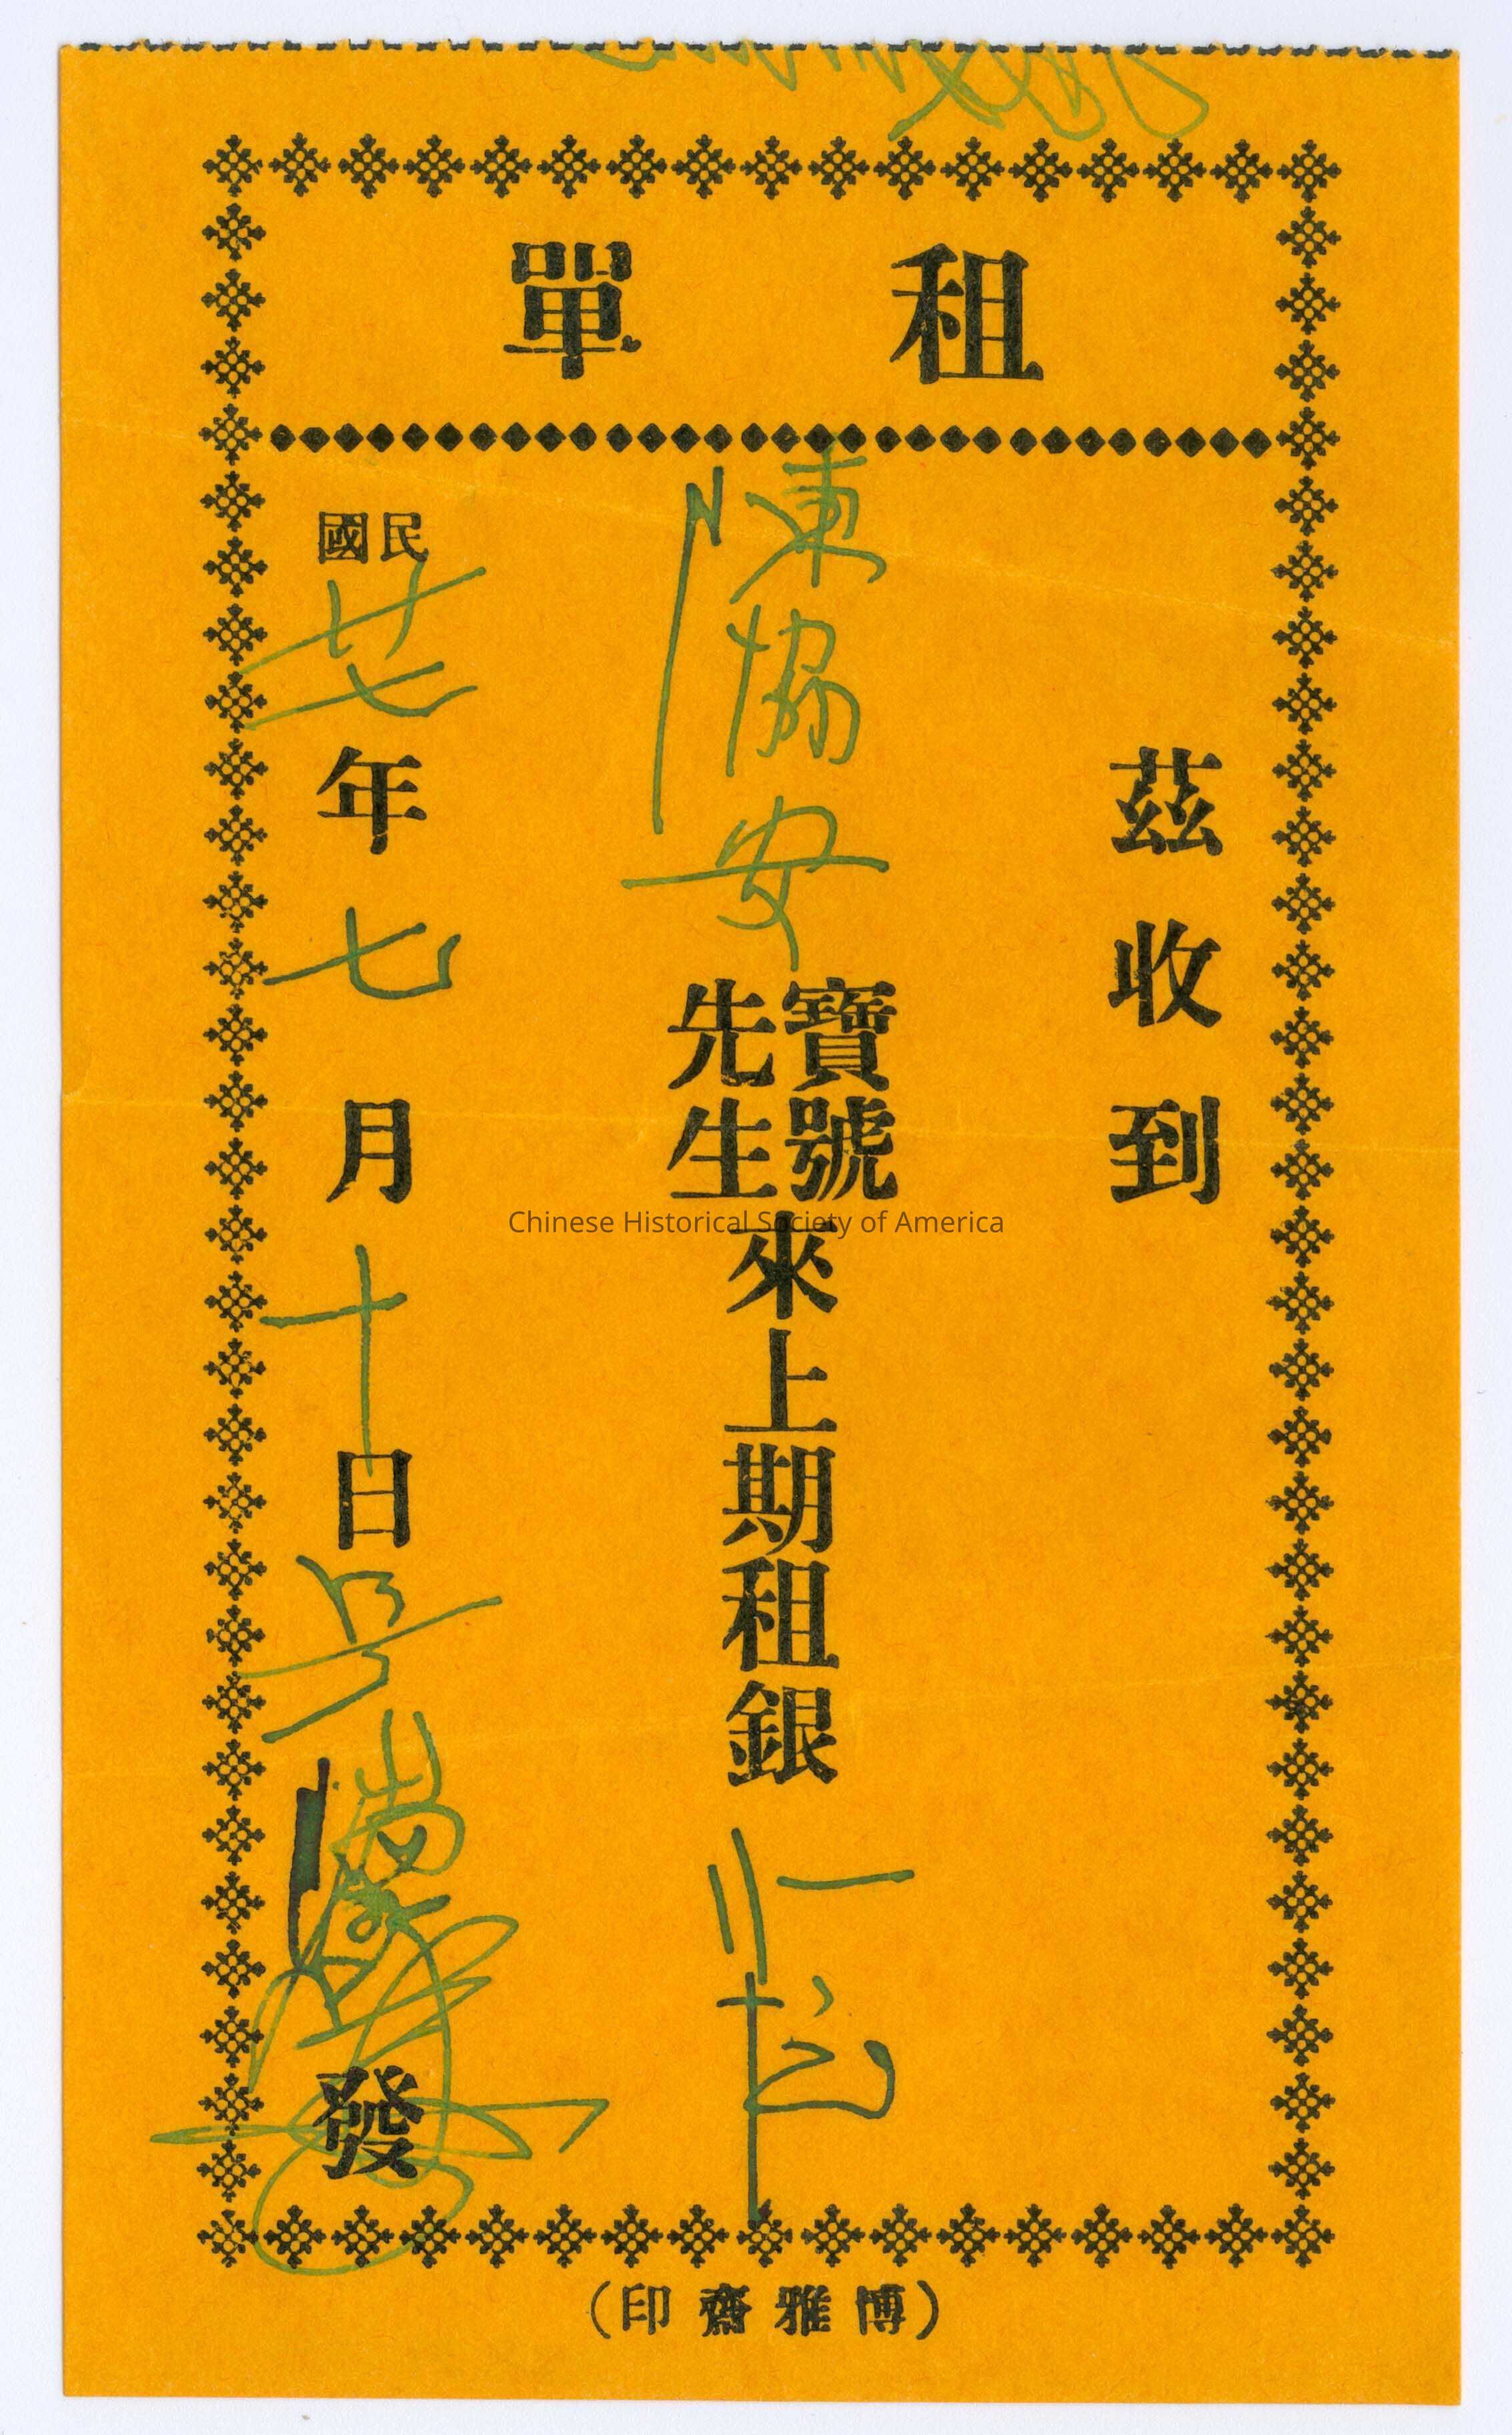 租單
茲收到
陳協安寶號先生來上期租銀
民國廿七年七月十日
發
（博雅齋印）
Chinese Historical Society of America